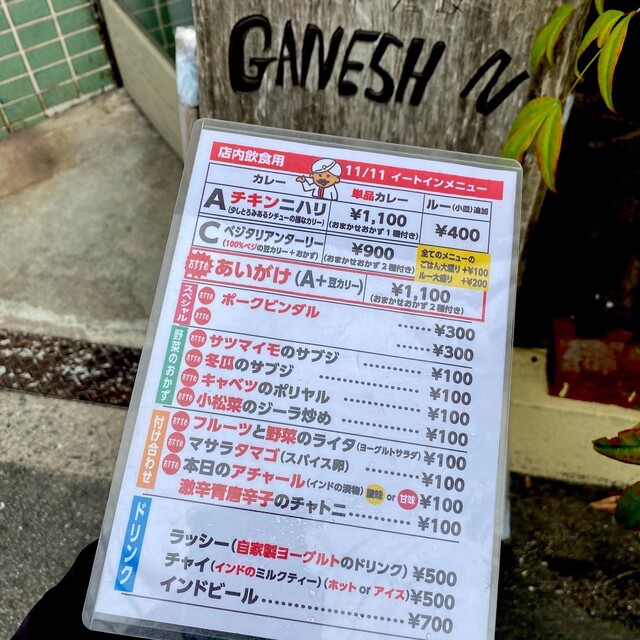 GANESH N
店内飲食用
11/11 イートインメニュー
カレー 単品カレー ルー(小皿)追加
A チキンニハリ ¥1,100 ¥400
(少しとろみあるシチューの様なカレー) (おまかせおかず1種付き)
C ベジタリアンターリー ¥900
(100%ベジの豆カリー+おかず) (おまかせおかず2種付き)
全てのメニューの
ごはん大盛り+¥100
ルー大盛り +¥200
あいがけ(A+豆カリー) ¥1,100
(おまかせおかず2種付き)
スペシャル
ポークビンダル ……¥300
……¥300
野菜のおかず
サツマイモのサブジ ……¥100
冬瓜のサブジ ……¥100
キャベツのポリヤル ……¥100
小松菜のジーラ炒め ……¥100
付け合わせ
フルーツと野菜のライタ(ヨーグルトサラダ) ¥100
マサラタマゴ(スパイス卵) ……¥100
本日のアチャール(インドの漬物) 酸味 or 甘味 ¥100
激辛青唐辛子のチャトニ ……¥100
ドリンク
ラッシー(自家製ヨーグルトのドリンク) ¥500
チャイ(インドのミルクティー)(ホット or アイス) ¥500
インドビール ……¥700